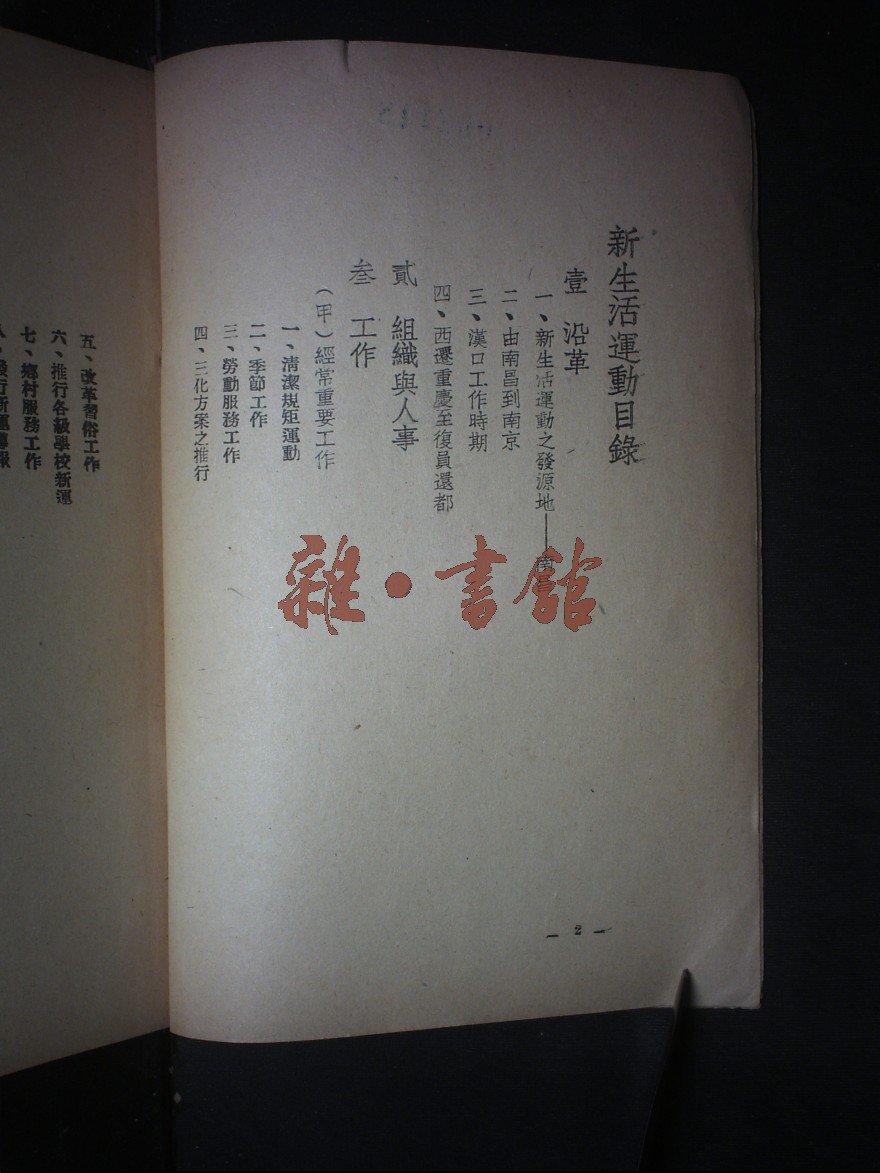 新生活運動目錄
壹 沿革
一、新生活運動之發源地——南昌
二、由南昌到南京
三、漢口工作時期
四、西遷重慶至復員還都
貳 組織與人事
叁 工作
（甲）經常重要工作
一、清潔規矩運動
二、季節工作
三、勞動服務工作
四、三化方案之推行
— 2 —
五、改革習俗工作
六、推行各級學校新運
七、鄉村服務工作
雜•書館